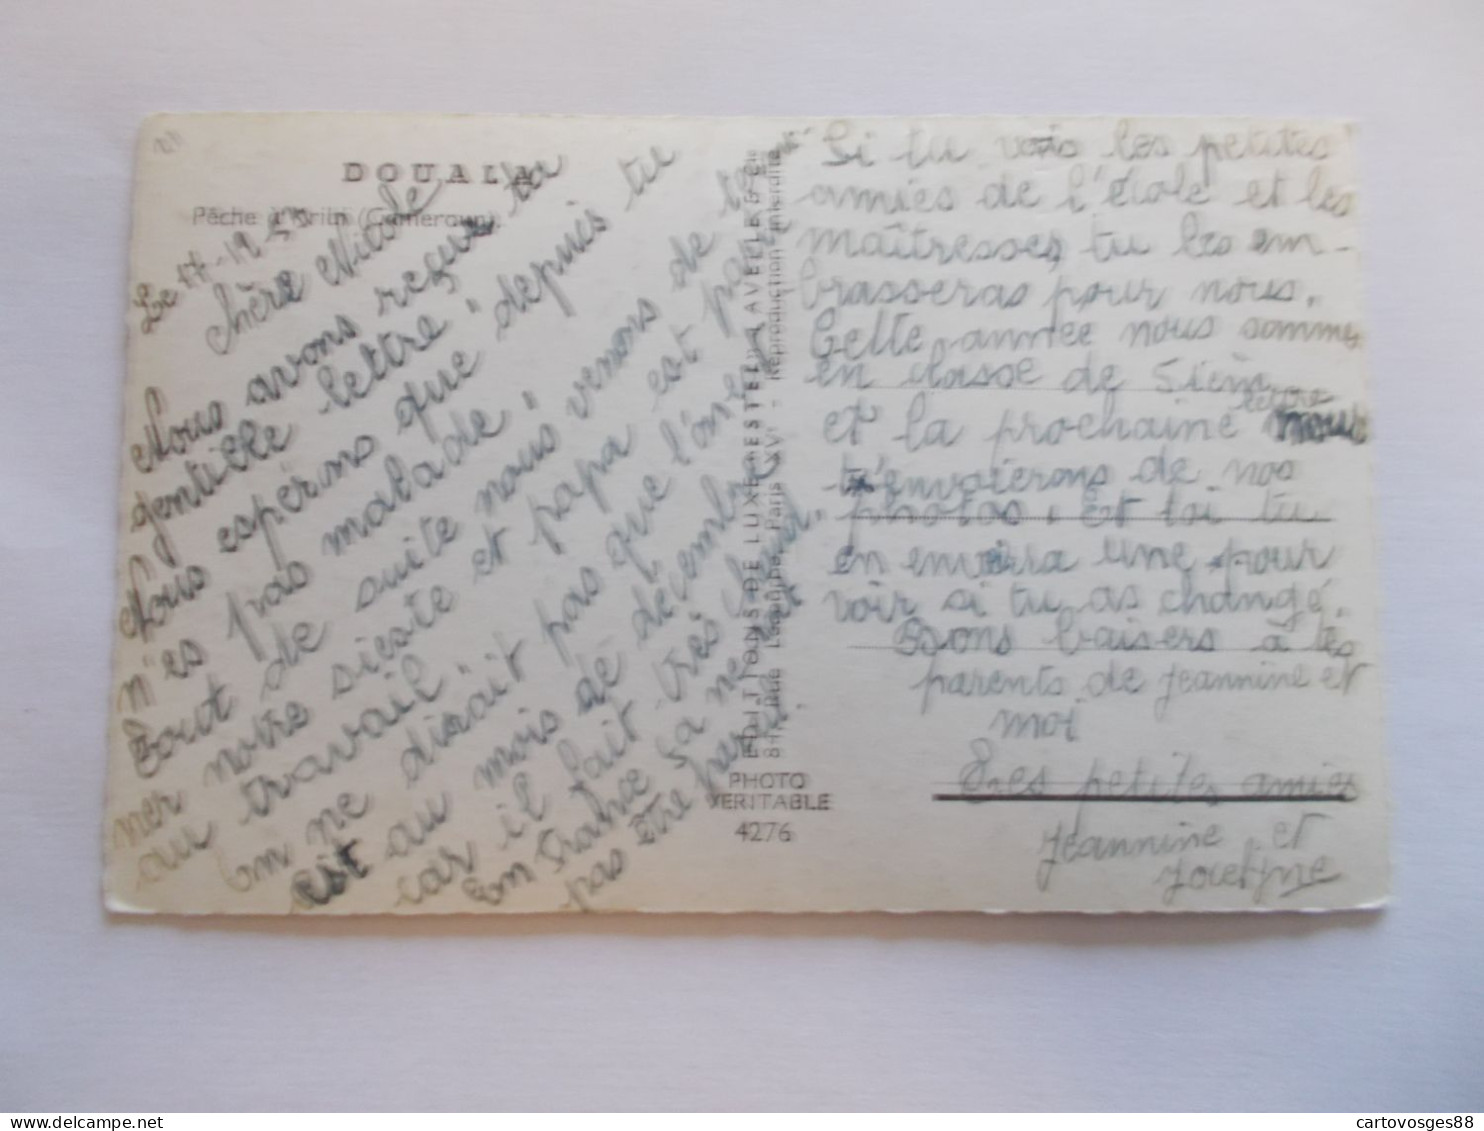 DOUALA
Pêche à Kribi (Cameroun)
Le 17-12-5
Chère Nicole
Nous avons reçue ta
gentille lettre. depuis tu
Nous espérons que
n'es pas malade.
Tout de suite nous venons de te
ner notre sieste et papa est
au travail.
On ne dirait pas que l'on
est au mois de décembre
car il fait très chaud.
En France ça ne
pas être
EDITIONS DE LUXE ESTEL
Reproduction interdite
PHOTO
VERITABLE
4276
Si tu vois les petites
amies de l'école et les
maîtresses, tu les em-
brasseras pour nous.
Cette année nous sommes
en classe de 5ièm
et la prochaine lettre nous
t'envoierons de nos
photos. Et toi tu
en enverra une pour
voir si tu as changé.
Bons baisers à tes
parents de Jeannine et
moi
Tes petites amies
Jeannine et
Jocelyne
delcampe.net
cartovosges88